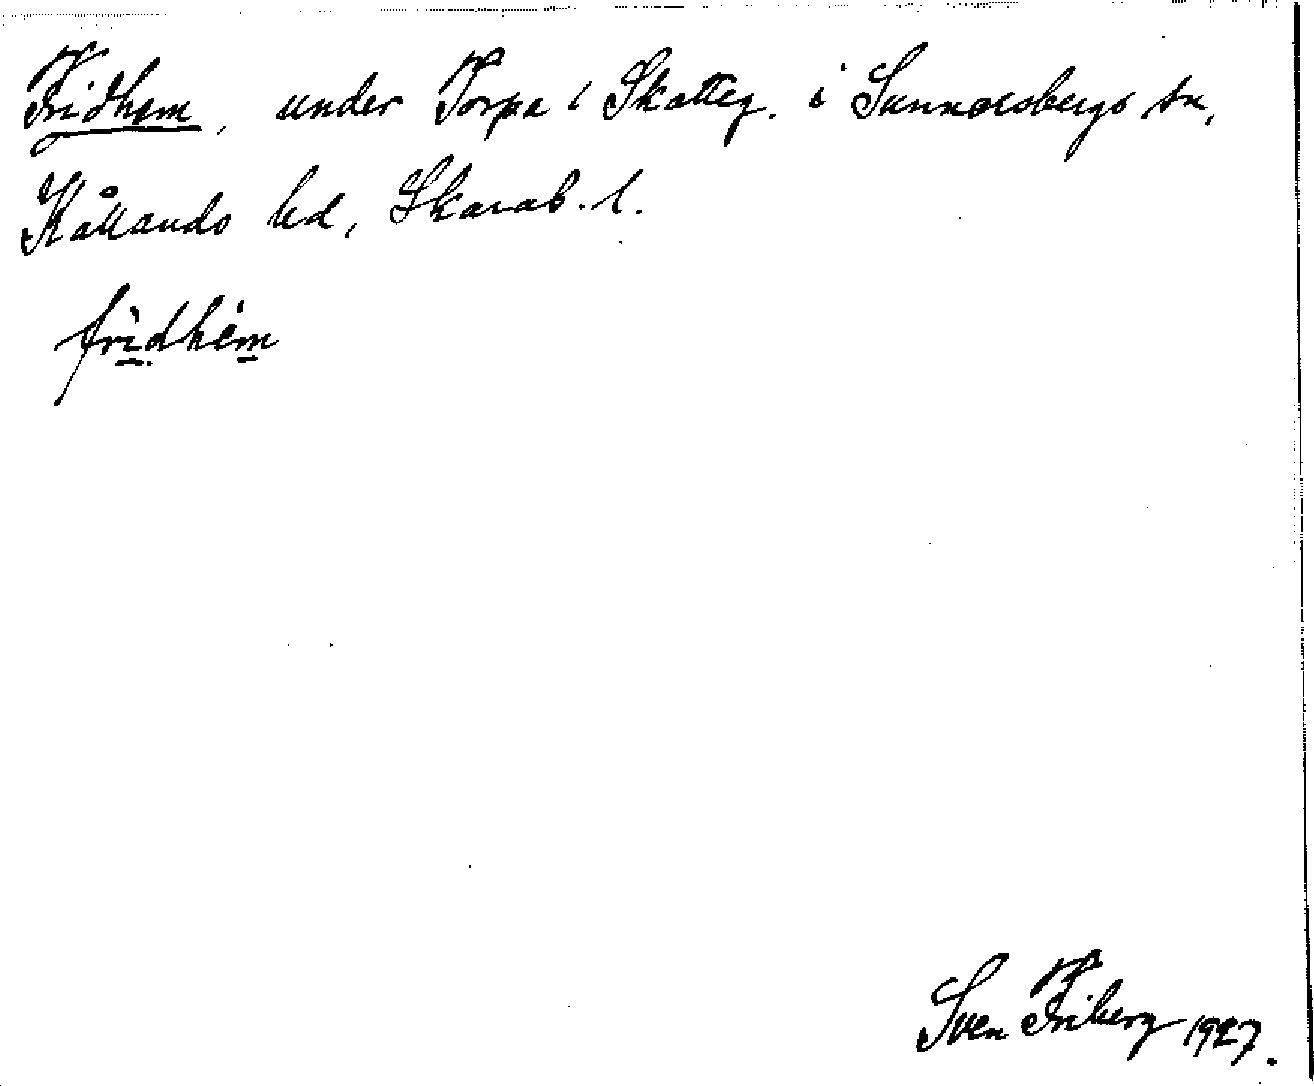 Fridhem, under Torpa 1 Skatteg. i Sunnersbergs sn,
Kållands hd, Skarab. l.
fridhem
Sven Friberg 1927.